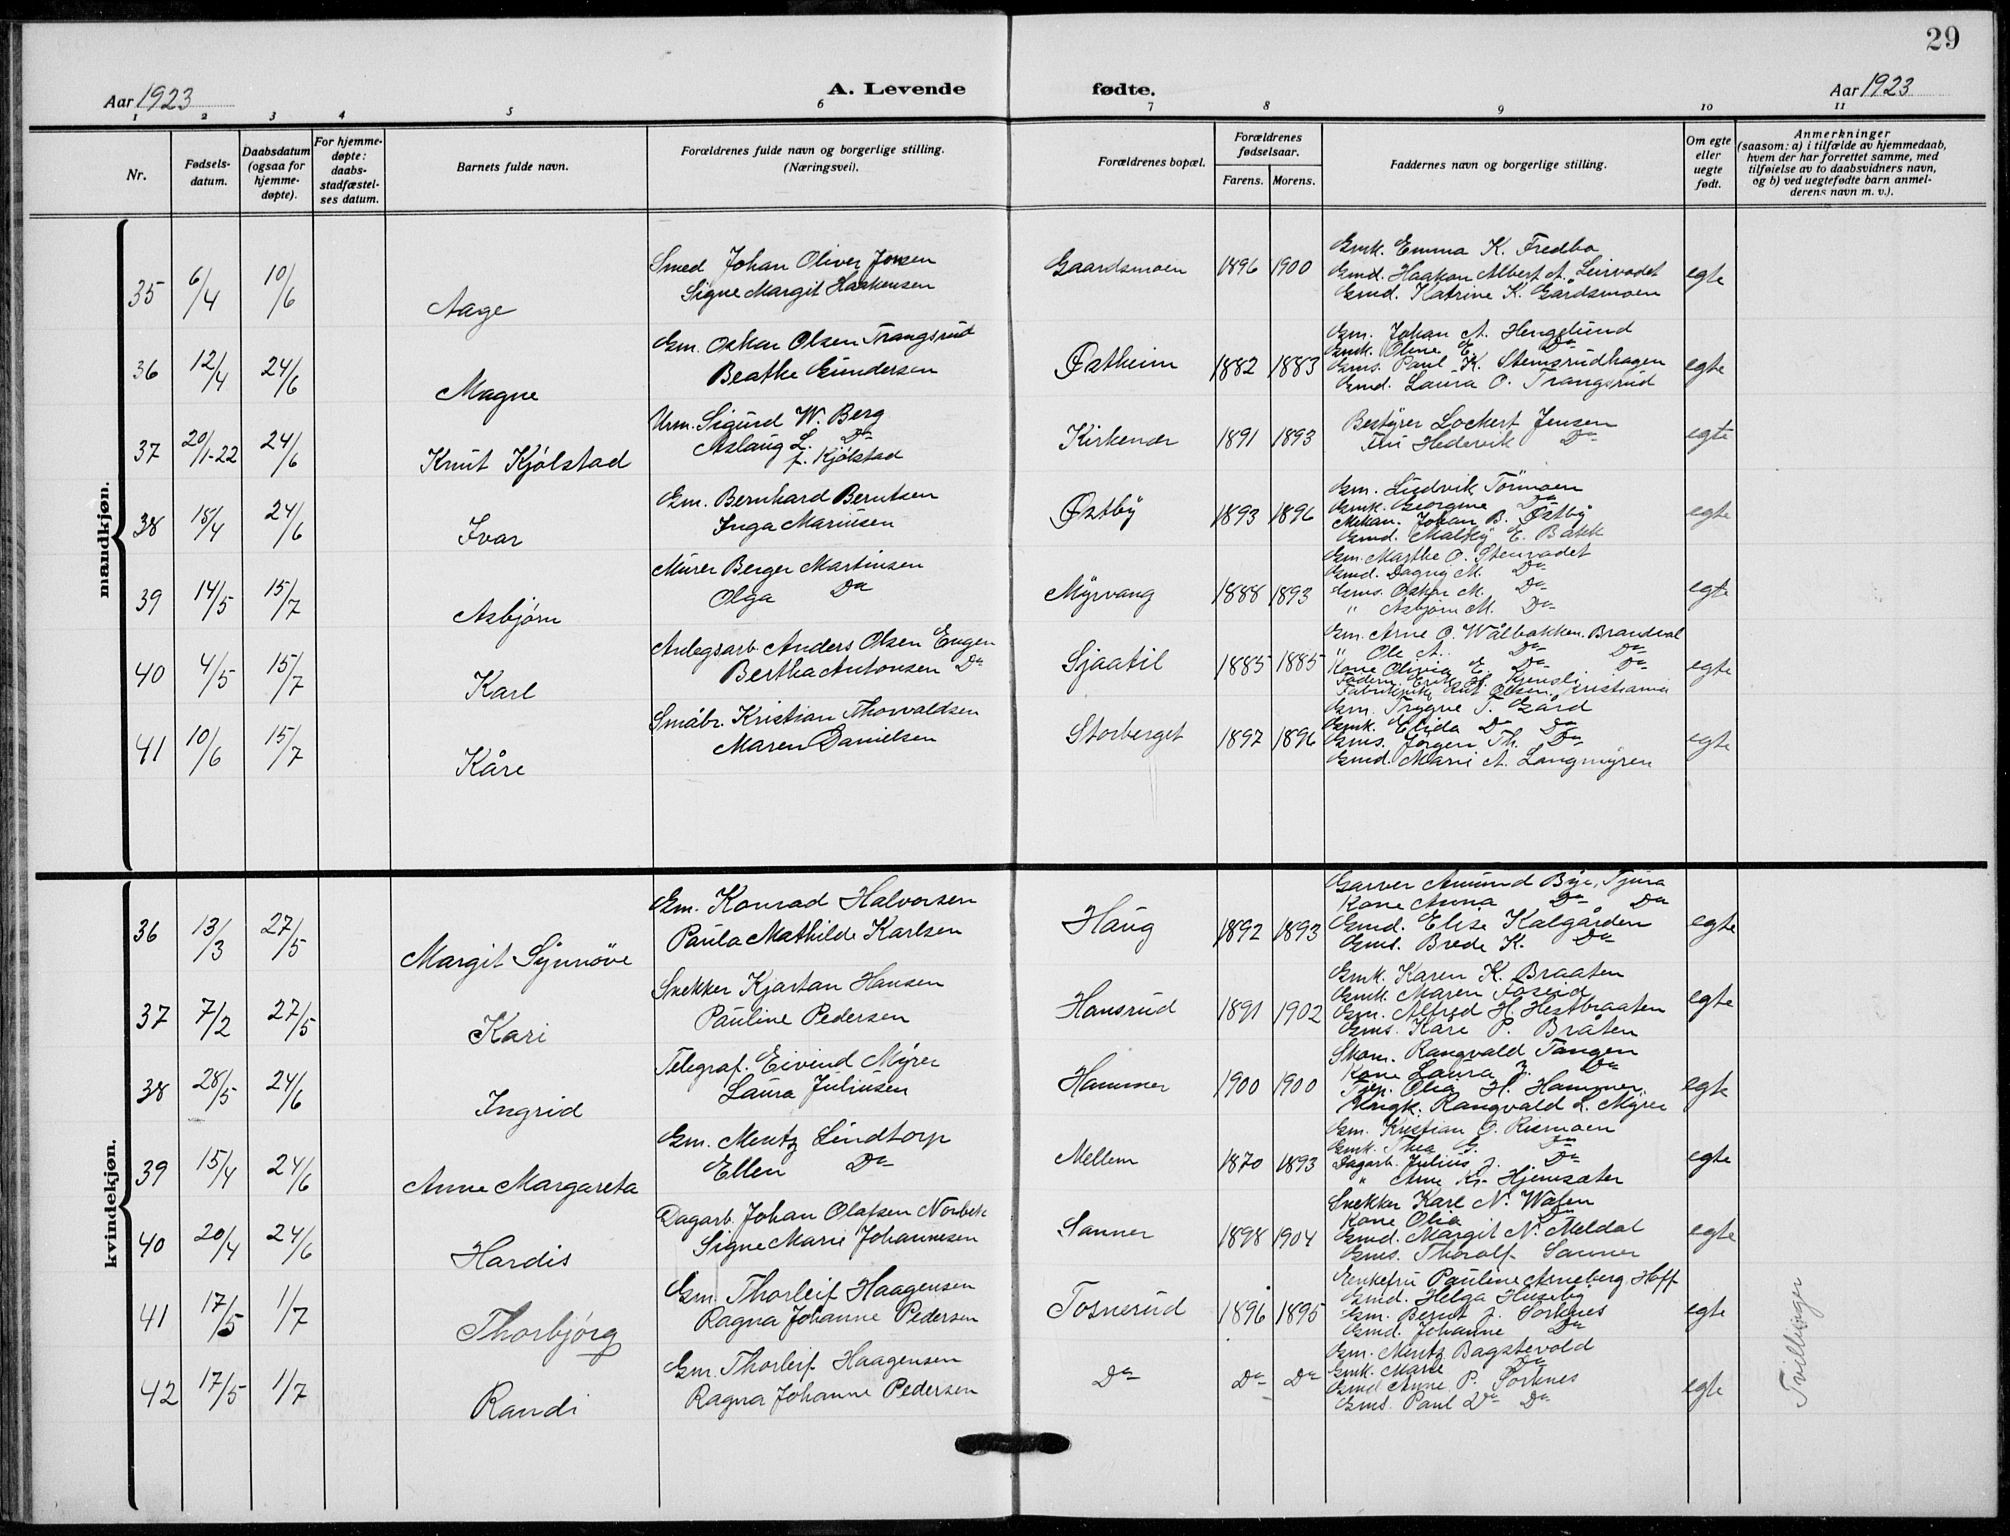 29
Aar 1923
A. Levende fødte.
Aar 1923
1 2 3 4 5 6 7 8 9 10 11
Nr.
Fødsels-
datum.
Daabsdatum
(ogsaa for
hjemme-
døpte).
For hjemme-
døpte:
daabs-
stadfæstel-
ses datum.
Barnets fulde navn.
Forældrenes fulde navn og borgerlige stilling.
(Næringsvei).
Forældrenes bopæl.
Forældrenes
fødselsaar.
Farens. Morens.
Faddernes navn og borgerlige stilling.
Om egte
eller
uegte
født.
Anmerkninger
(saasom: a) i tilfælde av hjemmedaab,
hvem der har forrettet samme, med
tilføielse av to daabsvidners navn,
og b) ved uegtefødte barn anmel-
derens navn m. v.).
mandkjøn.
35 6/4 10/6 Aage
Smed Johan Oliver Jensen
Signe Margit Haakensen
Gaardsmoen 1896 1900
Gmk. Emma K. Fredbo
Gmd. Haakon Albert A. Leirvadet
Gmd. Katrine K. Gårdsmoen
egte
36 12/4 24/6 Magne
Gm. Oskar Olsen Trangsrud
Beathe Gundersen
Østheim 1882 1883
Gm. Johan A. Hengelund
Gmk. Oline E. Do
Gms. Paul K. Stemsrudhagen
Gmd. Laura O. Trangsrud
egte
37 20/1-22 24/6 Knut Kjølstad
Urm. Sigurd W. Berg
Aslaug L. Do
f. Kjølstad
Kirkenær 1891 1893
Bestyrer Lockert Jensen
Fru Hedervik Do
egte
38 18/4 24/6 Ivar
Gm. Bernhard Berntsen
Inga Mariusen
Østby 1893 1896
Gm. Ludvik Törmoen
Gmk. Georgine Do
Mekan. Johan B. Østby
Gmd. Malfry E. Bakk
egte
39 14/5 15/7 Asbjørn
Murer Berger Martinsen
Olga Do
Myrvang 1888 1893
Gm. Marthe O. Stenvadet
Gmd. Dagny M. Do
Gms. Oskar M. Do
" Asbjørn M. Do
egte
40 4/5 15/7 Karl
Anlegsarb. Anders Olsen Engen
Bertha Antonsen Do
Sjaatil 1885 1885
Gm. Arne O. Wålbakken. Brandval
" Ole A. Do Do
Kone Olivia E. Do Do
Erik H. Kjensli
Olsen, Kristiania
egte
41 10/6 15/7 Kåre
Småbr. Kristian Thorvaldsen
Maren Danielsen
Storberget 1897 1896
Gm. Trygve T. Gård
Gmk. Elida Do Do
Gms. Jörgen Th. Do
Gmd. Marie A. Langmyren
egte
kvindekjøn.
36 13/3 27/5 Margit Synnøve
Gm. Konrad Halvorsen
Paula Mathilde Karlsen
Haug 1892 1893
Garver Amund Bye, Tjura
Kone Anna Do Do
Gmd. Elise Kalgården
Gms. Brede K. Do
egte
37 7/2 27/5 Kari
Snekker Kjartan Hansen
Pauline Pedersen
Hansrud 1891 1902
Gmk. Karen K. Braaten
Gmk. Maren Foseid
Gm. Alfred H. Hestbraaten
Gms. Kåre P. Bråten
egte
38 28/5 24/6 Ingrid
Telegraf. Eivind Myrer
Laura Juliusen
Hammer 1900 1900
Skom. Rangvald Tangen
Kone Laura J. Do
Tjen. Olia H. Hammer
Ungk. Rangvald L. Myrer
egte
39 15/4 24/6 Anne Margareta
Gm. Mentz Lindtorp
Ellen Do
Mellem 1870 1893
Gm. Kristian O. Rismoen
Gmk. Thea G. Do
Dagarb. Julius J. Do
" Arne Kr. Hjemsæter
egte
40 20/4 24/6 Hardis
Dagarb. Johan Olafsen Norbek
Signe Marie Johannesen
Sanner 1898 1904
Snekker Karl N. Wålen
Kone Olia Do
Gmd. Margit N. Meldal
Gms. Thoralf Sanner
egte
41 17/5 1/7 Thorbjørg
Gm. Thorleif Haagensen
Ragna Johanne Pedersen
Tosnerud 1896 1895
Enkefru Pauline Arneberg, Hoff
Gmd. Helga Huseby
Gm. Bernt J. Sorknes
Gmd. Johanne Do
egte
Tvillinger
42 17/5 1/7 Randi
Gm. Thorleif Haagensen
Ragna Johanne Pedersen
Do Do Do
Gm. Mentz Bagstevold
Gmk. Marie Do
Gmd. Anne P. Sorknes
Gms. Paul Do Do
egte